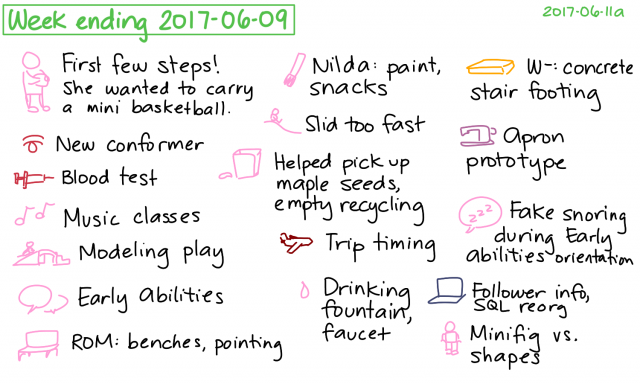 Week ending 2017-06-09
2017-06-11a
First few steps!
She wanted to carry
a mini basketball.
New conformer
Blood test
Music classes
Modeling play
Early abilities
ROM: benches, pointing
Nilda: paint,
snacks
Slid too fast
Helped pick up
maple seeds,
empty recycling
Trip timing
Drinking
fountain,
faucet
W-: concrete
stair footing
Apron
prototype
zzz
Fake snoring
during Early
abilities orientation
Follower info,
SQL reorg
Minifig vs.
shapes